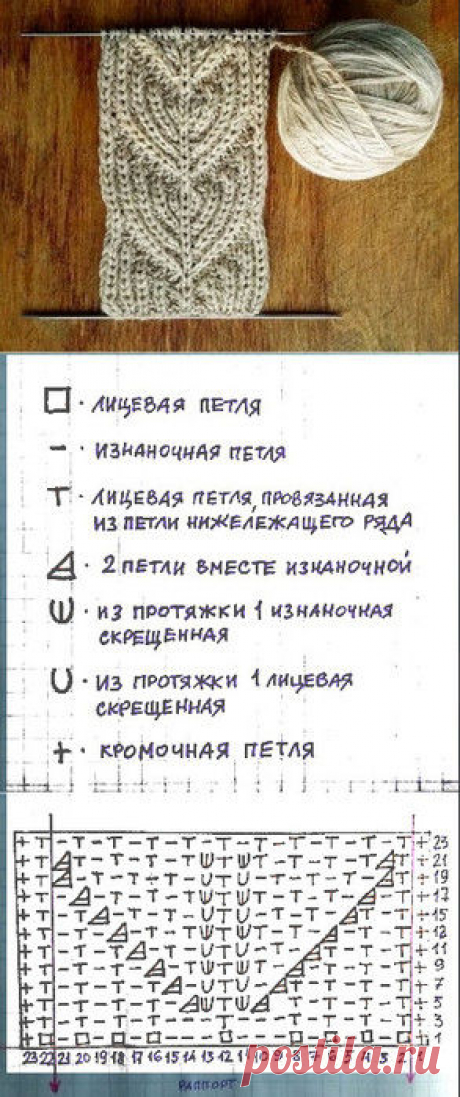 ЛИЦЕВАЯ ПЕТЛЯ
ИЗНАНОЧНАЯ ПЕТЛЯ
ЛИЦЕВАЯ ПЕТЛЯ, ПРОВЯЗАННАЯ
ИЗ ПЕТЛИ НИЖЕЛЕЖАЩЕГО РЯДА
2 ПЕТЛИ ВМЕСТЕ ИЗНАНОЧНОЙ
ИЗ ПРОТЯЖКИ 1 ИЗНАНОЧНАЯ
СКРЕЩЕННАЯ
ИЗ ПРОТЯЖКИ 1 ЛИЦЕВАЯ
СКРЕЩЕННАЯ
КРОМОЧНАЯ ПЕТЛЯ
23
21
19
17
15
13
11
9
7
5
3
1
23 22 21 20 19 18 17 16 15 14 13 12 11 10 9 8 7 6 5 4 3 2 1
РАППОРТ
postila.ru